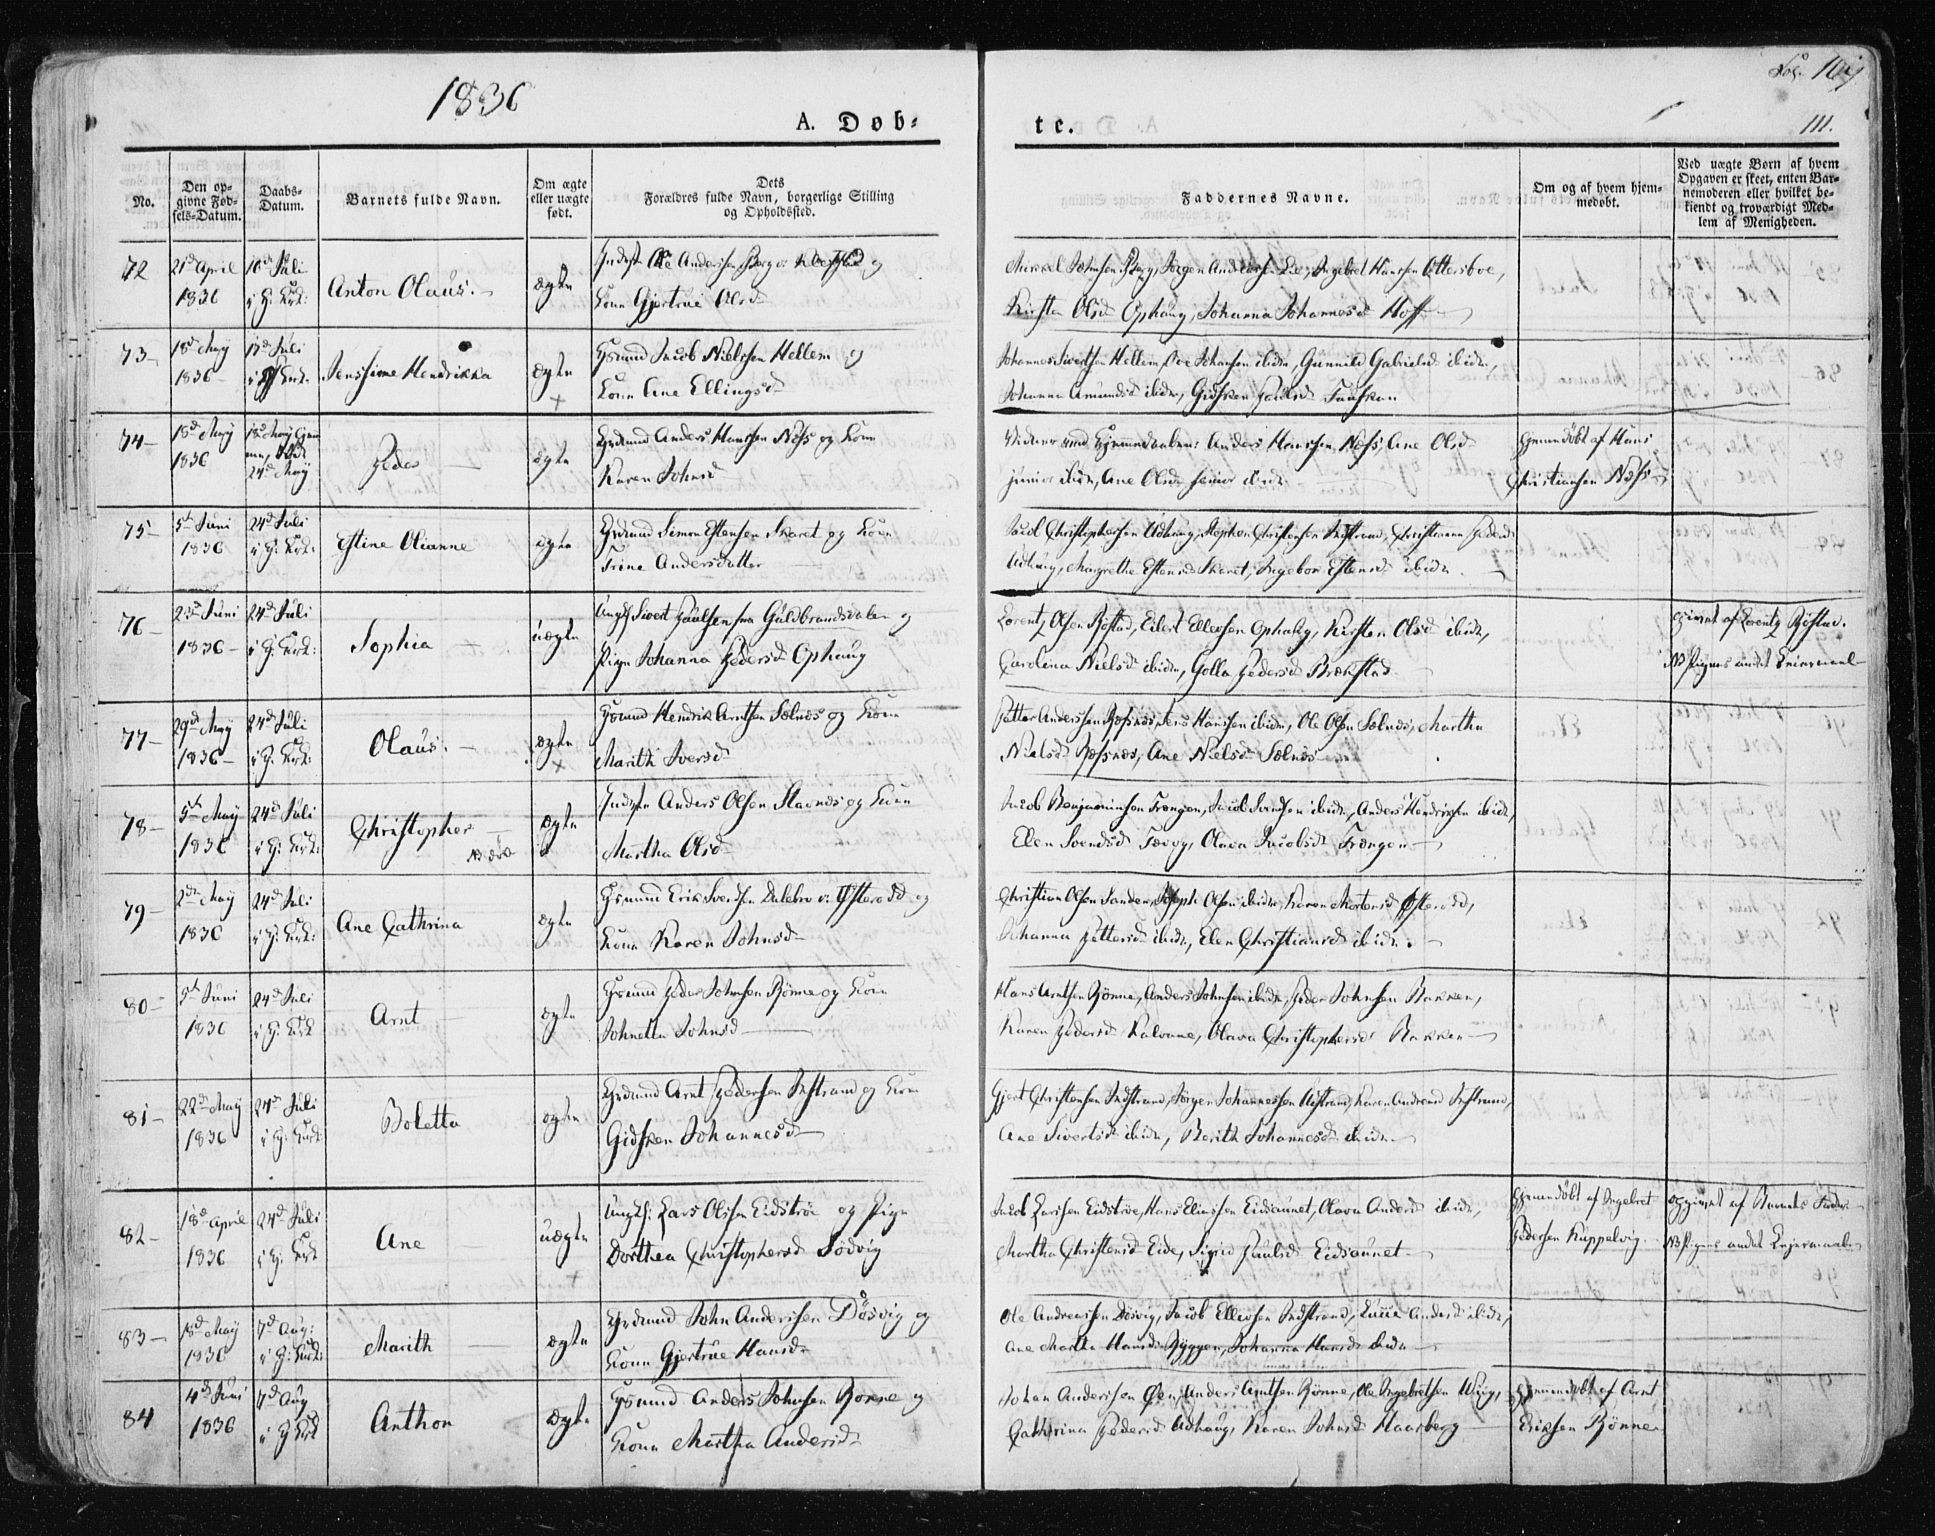 1836
A. Døb-
te.
Fol. 109
111.
No.
Den op-
givne Fød-
sels-Datum.
Daabs-
Datum.
Barnets fulde Navn.
Om ægte
eller uægte
født.
Dets
Forældres fulde Navn, borgerlige Stilling
og Opholdssted.
Faddernes Navne.
Om og af hvem hjem-
medøbt.
Ved uægte Børn af hvem
Opgaven er skeet, enten Bar-
nemoderen eller hvilket be-
kiendt og troværdigt Med-
lem af Menigheden.
72
21de April
1836
10de Juli
i H: Kirk:
Anton Olaus.
ægte
Indst Ole Andersen Berg og
Kone Gjertrue Olsd
Mikkel Johnsen Berg, Jørgen Andersen Lie, Ingebret Hansen Ottersboe,
Kirsten Olsd Ophaug, Johanna Johannesd Hoff
73
18de May
1836
17de Juli
i Kirk:
Jenssine Hendrikka
ægte
Grmand Jacob Nielssen Hellem og
Kone Ane Ellingsd
Johannes Sivertsen Hellem, Ove Johansen ibidn, Gunnild Gabrielsd ibidn,
Johanna Amundsd ibidn, Gidsken Paulsd
74
18de May
1836
18de May hjem
24de May
Peder
ægte
Grdmand Anders Hanssen Næss og Kone
Karen Johnsd
Vidner ved hjemmedaaben: Anders Hanssen Næss, Ane Olsd
junior ibidn, Ane Olsd senior ibidn
Hjemmedøbt af Hans
Christiansen Næss
75
5te Juni
1836
24de Juli
i H: Kirk:
Estine Olianne
ægte
Grdmand Simon Estensen Skaret og Kone
Trine Andersdatter
Jacob Christophersen Udhaug, Stephen Christensen Indstrand, Christianna Pedersd
Udhaug, Margrethe Estensd Skaret, Ingebor Estensd ibidn.
76
23de Juni
1836
24de Juli
i H: Kirk:
Sophia
uægte
Ungk Sivert Paulsen fra Guldbrandsdalen og
Pige Johanna Pedersd Ophaug
Lorentz Olsen Røstad, Eilert Ellevsen Ophaug, Kirsten Olsd ibidn,
Carolina Nielsd ibidn, Golla Pedersd Brækstad
Opgivet af Lorentz Røstad.
NB Pigens andet Leiermaal
77
29de May
1836
24de Juli
i H: Kirk:
Olaus.
ægte
Grmand Hendrik Arntsen Sølnæs og Kone
Marith Iversd
Petter Anderssen Røssnæs, Jens Hanssen ibidn, Ole Olsen Sølnæs, Martha
Nielsd Røssnæs, Ane Nielsd Sølnæs
78
5te May
1836
24de Juli
i H: Kirk:
Christopher
ægte
Indstn Anders Olsen Stavnæs og Kone
Martha Olsd
Jacob Benjaminsen Frengen, Jacob Svendsen ibidn, Anders Hendriksen ibidn,
Elen Svendsd Tævog, Olava Jacobsd Frengen
79
2den May
1836
24de Juli
i H: Kirk:
Ane Cathrina
ægte
Grmand Erik Svendsen Dalebro v: Østeraad og
Kone Karen Johnsd
Christian Olsen Sanden, Joseph Olsen ibidn, Karen Mortensd Østeraad,
Johanna Pettersd ibidn, Elen Christiansd ibidn.
80
5te Juni
1836
24de Juli
i H: Kirk
Arnt
ægte
Grmand Peder Johnsen Rønne og Kone
Johnetta Johnsd
Hans Arntsen Rønne, Anders Johnsen ibidn, Peder Johnsen Bakken,
Karen Pedersd Kalvaae, Olava Christophersd Bakken
81
22de May
1836
24de Juli
i H: Kirk:
Boletta
ægte
Grdmand Arnt Pedersen Indstrand og Kone
Gidsken Johannesd
Gjert Christensen Indstrand, Jørgen Johannessen Udstrand, Karen Andreasd Indstrand,
Ane Sivertsd ibidn, Berith Johannesd ibidn
82
18de April
1836
24de Juli
i H: Kirk
Ane
uægte
Ungk: Lars Olssen Eidstrøe og Pige
Dorthea Christophersd Sødvig
Jacob Larssen Eidstrøe, Hans Eliassen Eidsaunet, Olava Andersd ibidn,
Martha Christensd Eide, Sigrid Paulsd Eidsaunet
Hjemmedøbt af Ingebret
Pedersen Kuppelvig
Opgivet af Barnets Fader
NB Pigens andet Leiermaal
83
18de May
1836
7de Aug:
i H: Kirk:
Marith
ægte
Grdmand John Anderssen Døsvig og
Kone Gjertrue Hansd
Ole Andreassen Døsvig, Jacob Ellevsen Indstrand, Andersd ibidn,
Ane Martha Hansd Ryggen, Johanna Hansd ibidn
84
4de Juni
1836
7de Aug
i H: Kirk
Anthon
ægte
Grmand Anders Johnsen Rønne og
Kone Martha Andersd
Johan Anderssen Øen, Anders Arntsen Rønne, Ole Ingebretsen Wiig,
Cathrina Pedersd Udhaug, Karen Johnsd Haarberg
Hjemmedøbt af Arnt
Eriksen Rønne